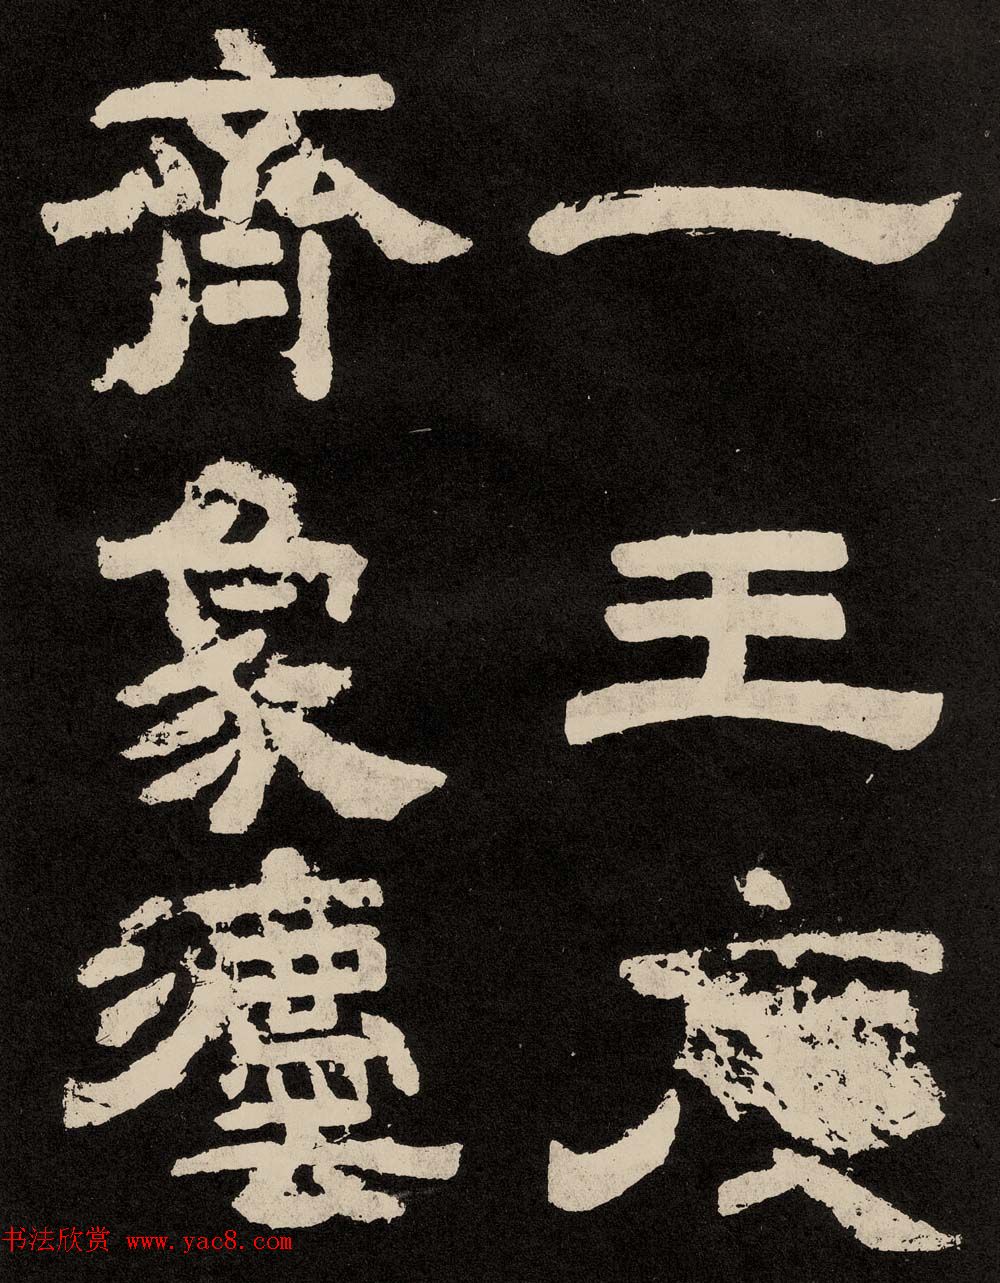 一王度
齊象
书法欣赏 www.yac8.com